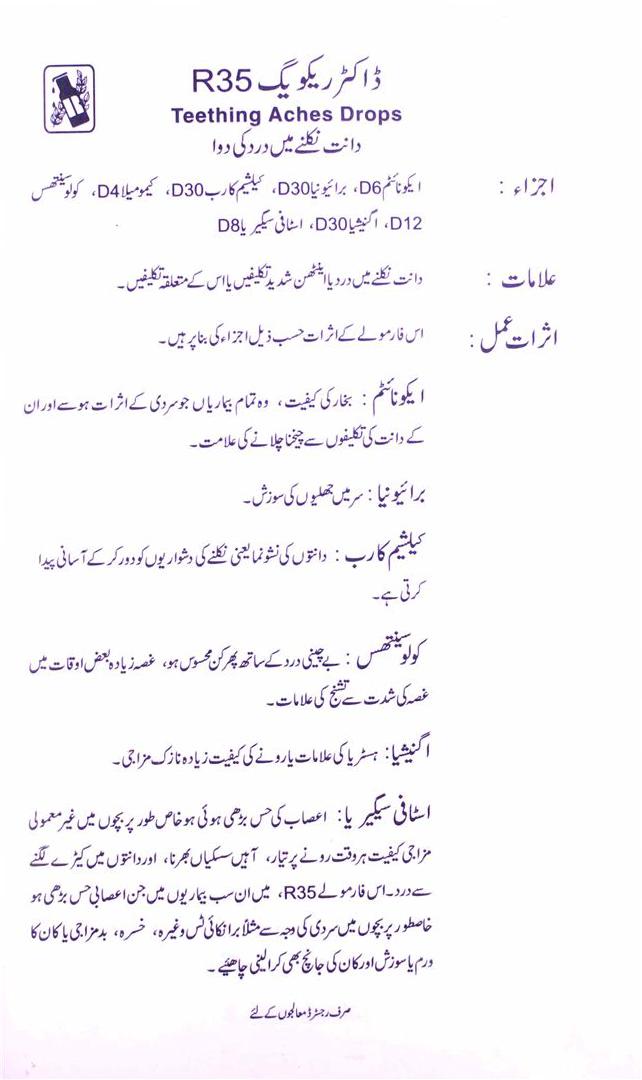 ڈاکٹر ریکویگ R35
Teething Aches Drops
دانت نکلنے میں درد کی دوا
اجزاء : ایکونائٹم D6، برائیونیا D30، کیلشیم کارب D30، کیمومیلا D4، کولوسینتھس
D12، اگنیشیا D30، اسٹافی سیگیریا D8
علامات : دانت نکلنے میں درد یا اینٹھن شدید تکلیفیں یا اس کے متعلقہ تکلیفیں۔
اثرات عمل : اس فارمولے کے اثرات حسب ذیل اجزاء کی بنا پر ہیں۔
ایکونائٹم : بخار کی کیفیت، وہ تمام بیماریاں جو سردی کے اثرات ہو سے اور ان
کے دانت کی تکلیفوں سے چیخنا چلانے کی علامت۔
برائیونیا : سر میں جھلیوں کی سوزش۔
کیلشیم کارب : دانتوں کی نشوونما یعنی نکلنے کی دشواریوں کو دور کر کے آسانی پیدا
کرتی ہے۔
کولوسینتھس : بے چینی درد کے ساتھ پھر کن محسوس ہو، غصہ زیادہ بعض اوقات میں
غصہ کی شدت سے تشنج کی علامات۔
اگنیشیا : ہسٹریا کی علامات یا رونے کی کیفیت زیادہ نازک مزاجی۔
اسٹافی سیگیریا : اعصاب کی حس بڑھی ہوئی ہو خاص طور پر بچوں میں غیر معمولی
مزاجی کیفیت ہر وقت رونے پر تیار، آہیں سسکیاں بھرنا، اور دانتوں میں کیڑے لگنے
سے درد۔ اس فارمولے R35، میں ان سب بیماریوں میں جن اعصابی حس بڑھی ہو
خاصطور پر بچوں میں سردی کی وجہ سے مثلاً برانکائی ٹس وغیرہ، خسرہ، بدمزاجی یا کان کا
ورم یا سوزش اور کان کی جانچ بھی کرالینی چاھئیے۔
صرف رجسٹرڈ معالجوں کے لئے